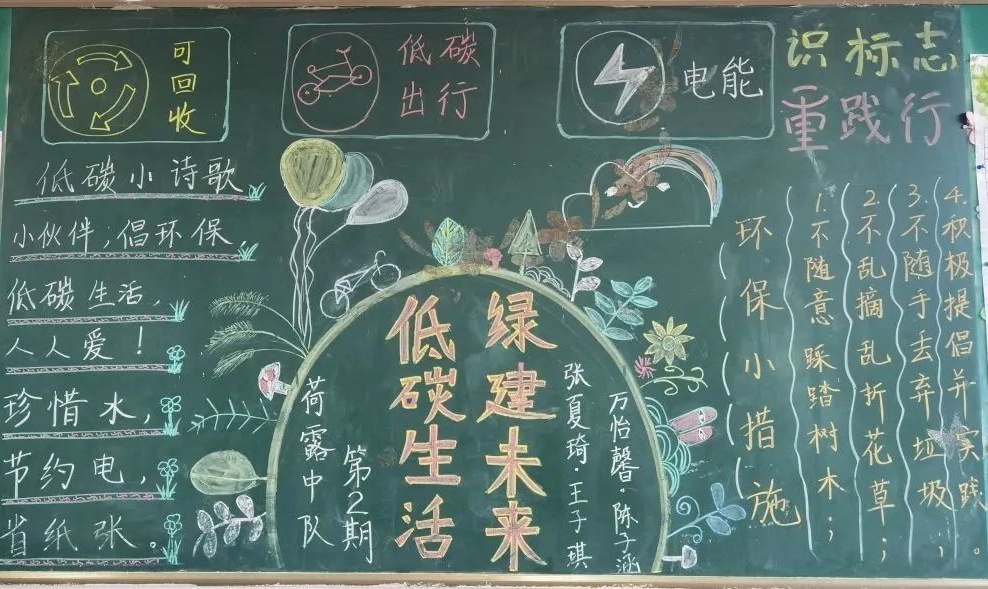 可回收
低碳
出行
电能
识标志
重践行
低碳小诗歌
小伙伴,倡环保,
低碳生活,
人人爱!
珍惜水,
节约电,
省纸张。
荷露中队
第2期
低碳生活
绿建未来
张夏琦·王子琪
万怡馨·陈子涵
环保小措施
1.不随意踩踏树木;
2.不乱摘乱折花草;
3.不随手丢弃垃圾;
4.积极提倡并实践。